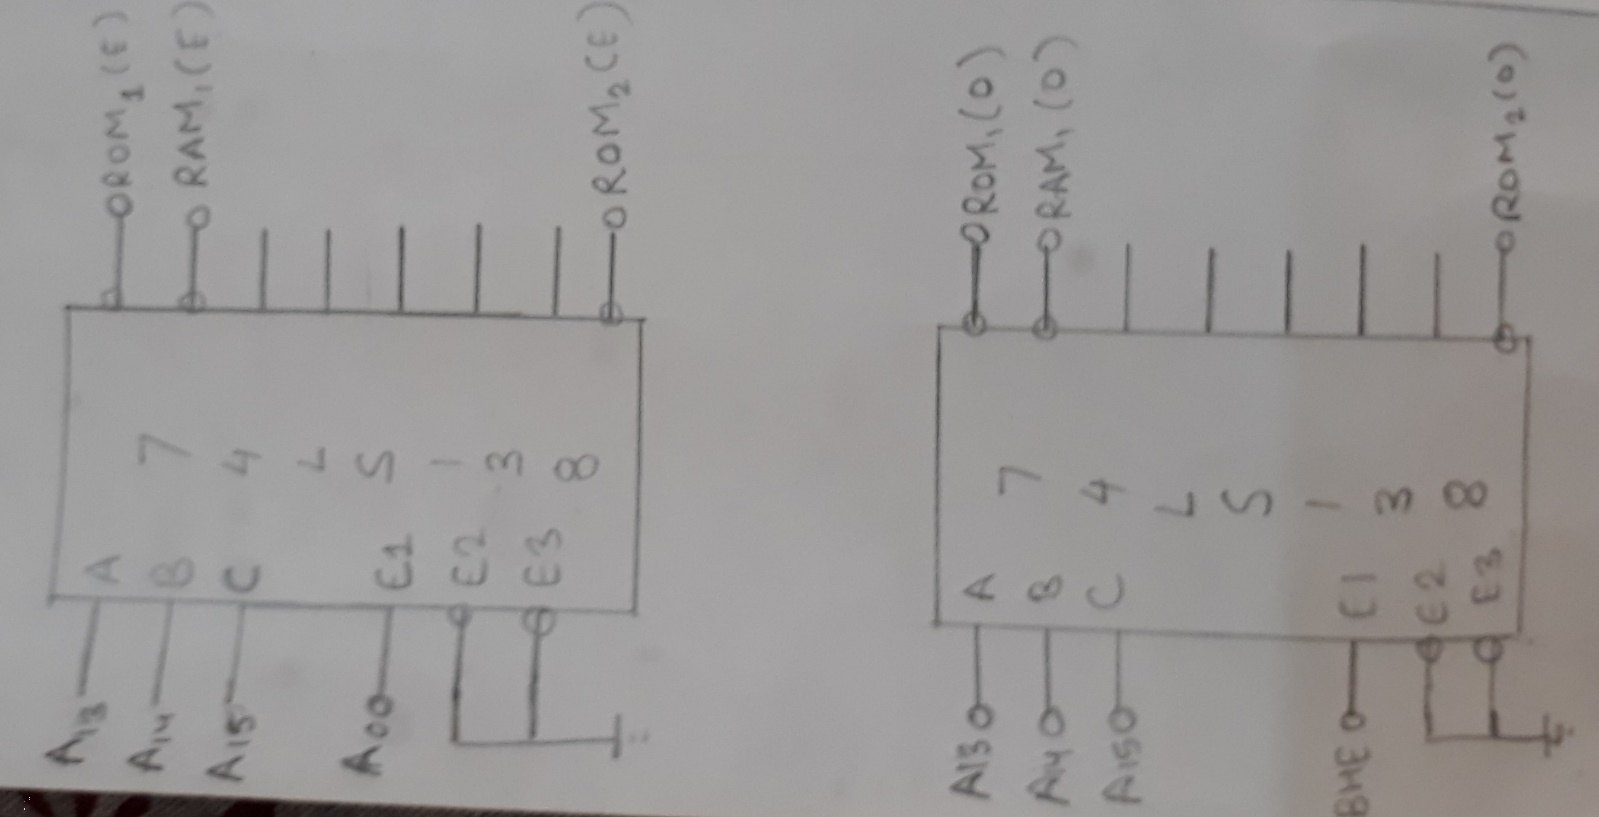 A13
A14
A15
A0
A
B
C
E1
E2
E3
74LS138
ROM1(E)
RAM1(E)
ROM2(E)
A13
A14
A15
BHE
A
B
C
E1
E2
E3
74LS138
ROM1(O)
RAM1(O)
ROM2(O)